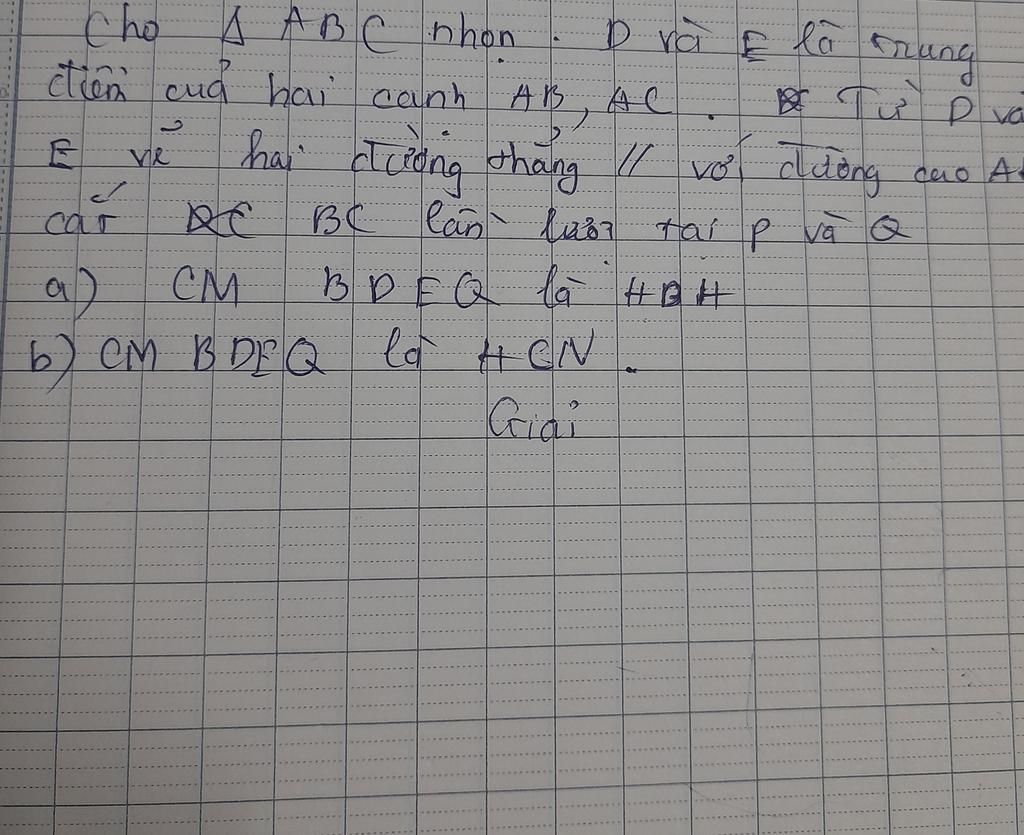 Cho Δ ABC nhọn. D và E là trung
điểm của hai cạnh AB, AC. Từ D và
E vẽ hai đường thẳng // với đường cao A
cắt BC lần lượt tại P và Q
a) CM BDEQ là HBH
b) CM BDEQ là HCN.
Giải